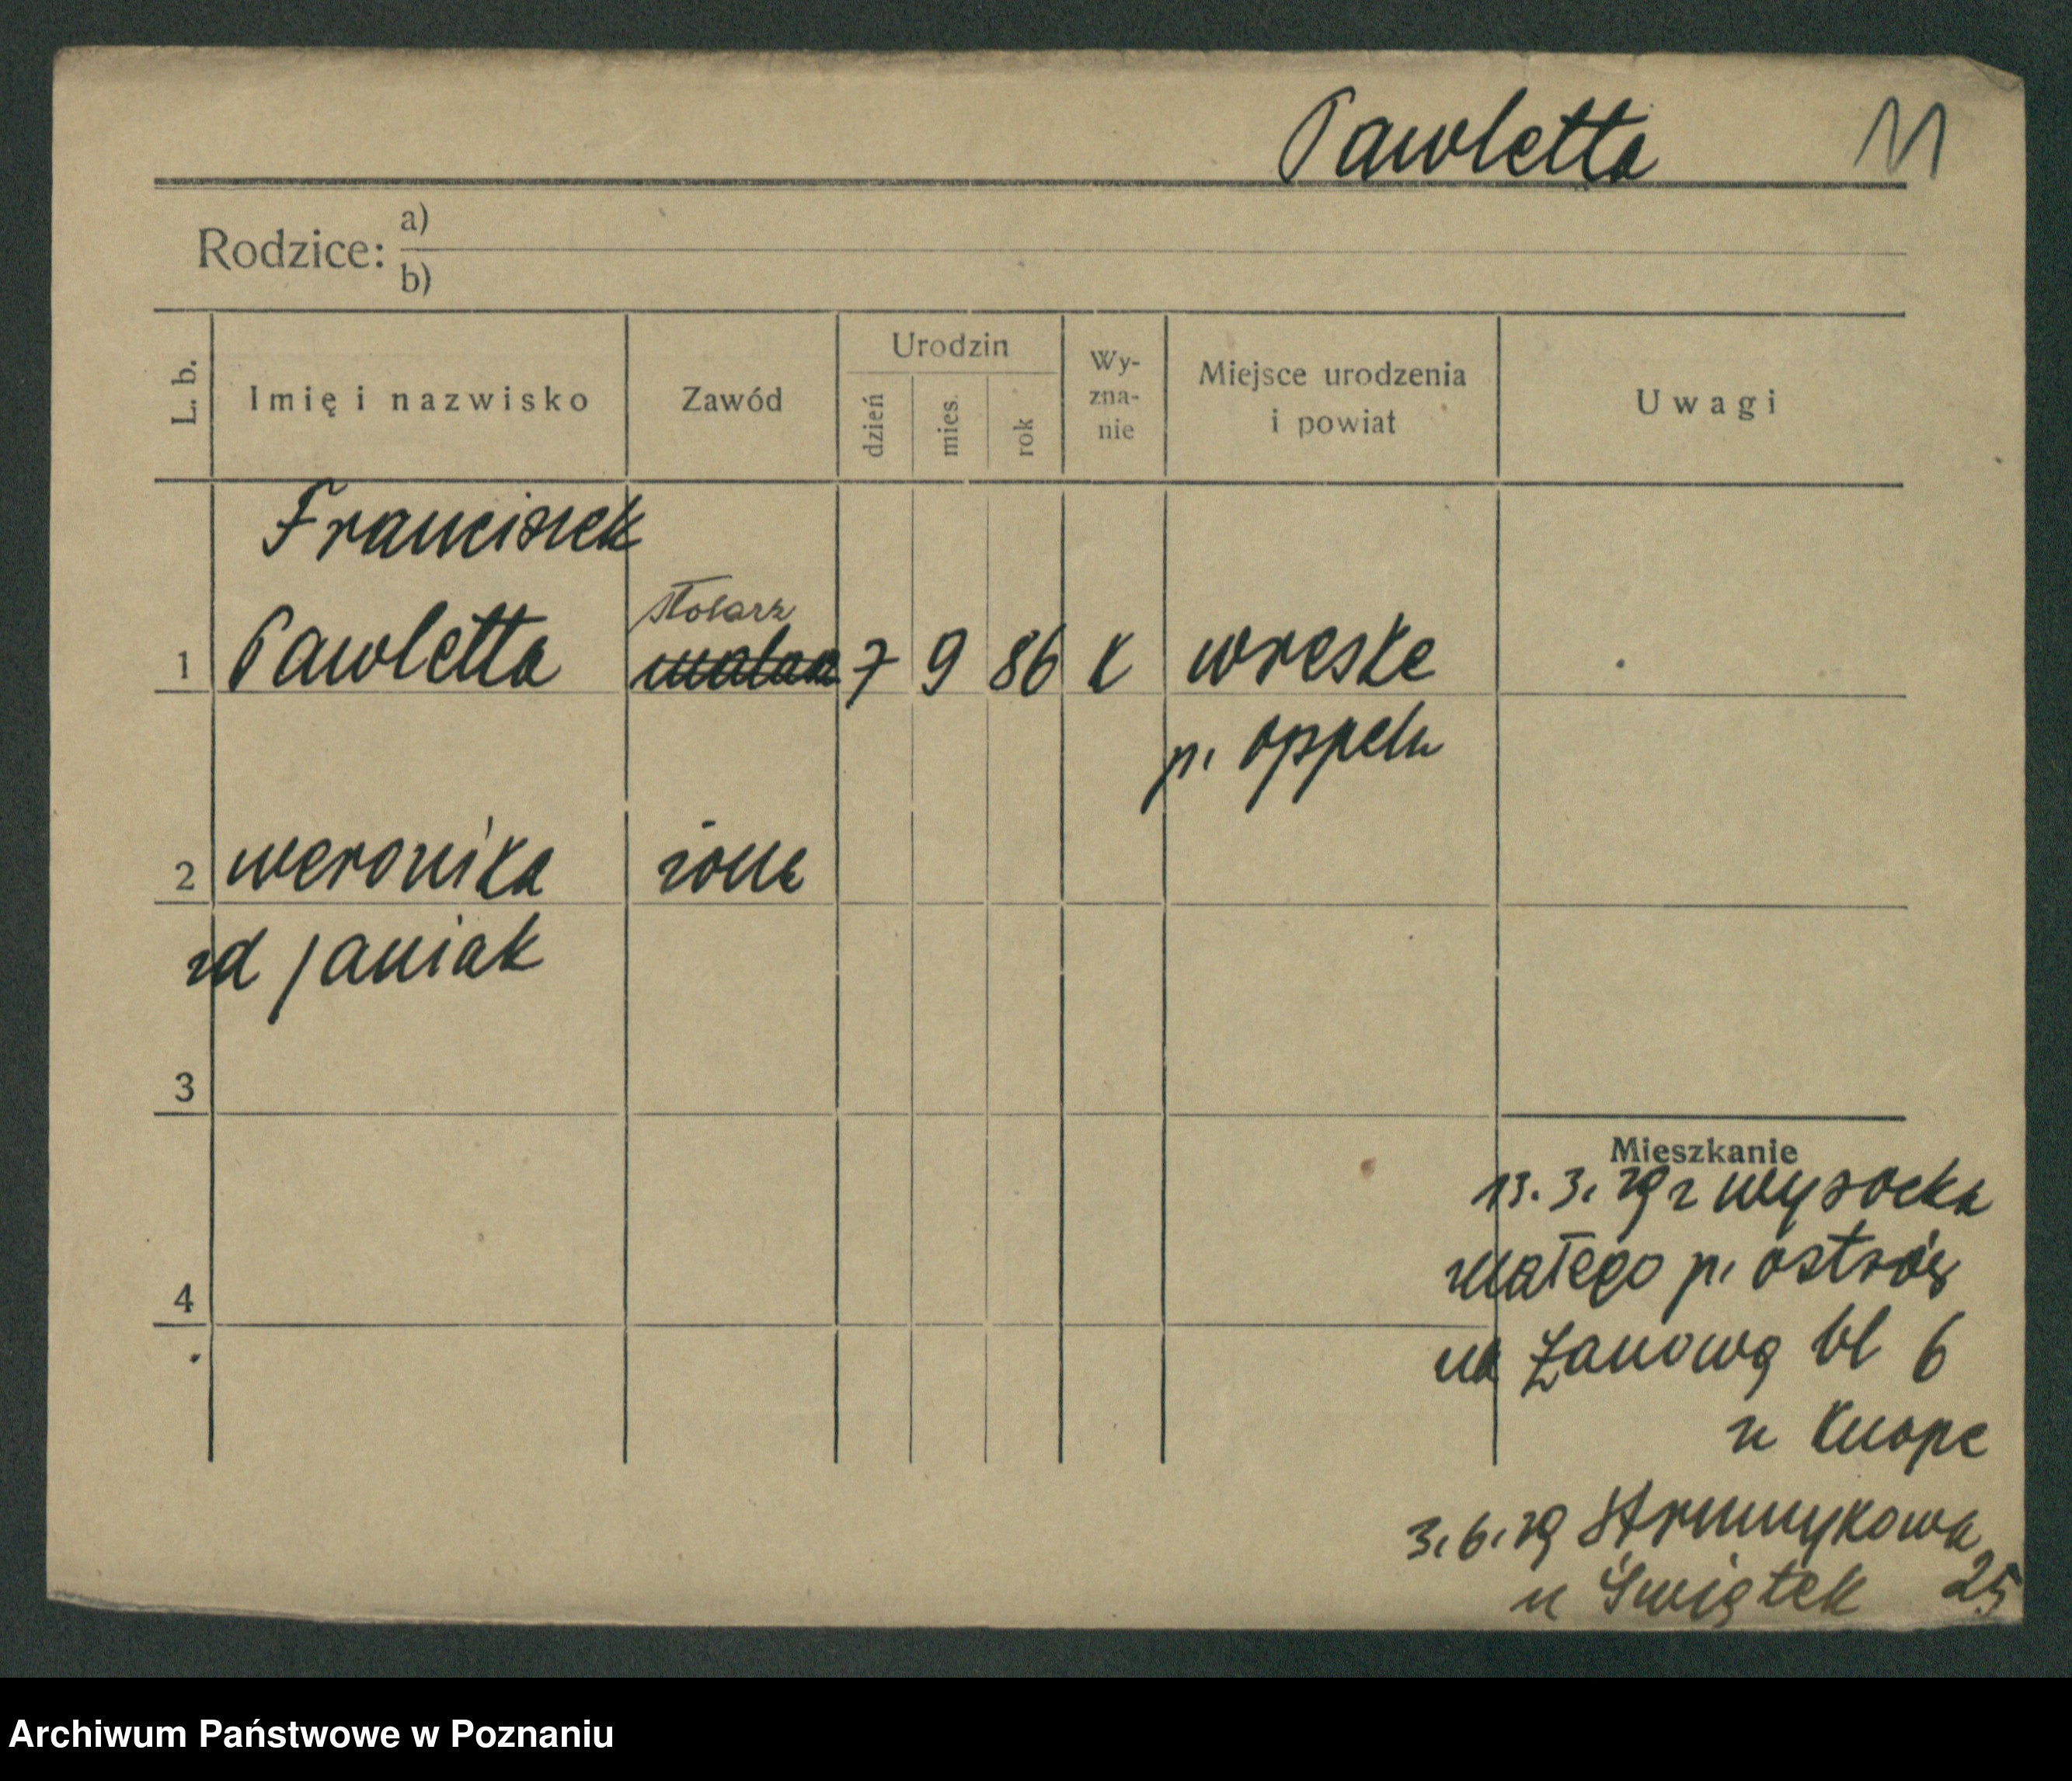 Pawletta M
Rodzice: a)
b)
L. b. Imię i nazwisko Zawód Urodzin dzień mies. rok Wy-zna-nie Miejsce urodzenia i powiat Uwagi
Franciszek
stolarz
1 Pawletta malarz 7 9 86 k wreske
p. oppeln
2 weronika żona
zd janiak
3
Mieszkanie
13. 3. 29 z wysocka
małego p. ostrów
4
na Łanową bl 6
u Knope
3. 6. 29 Strumykowa
u Świątek 25
Archiwum Państwowe w Poznaniu